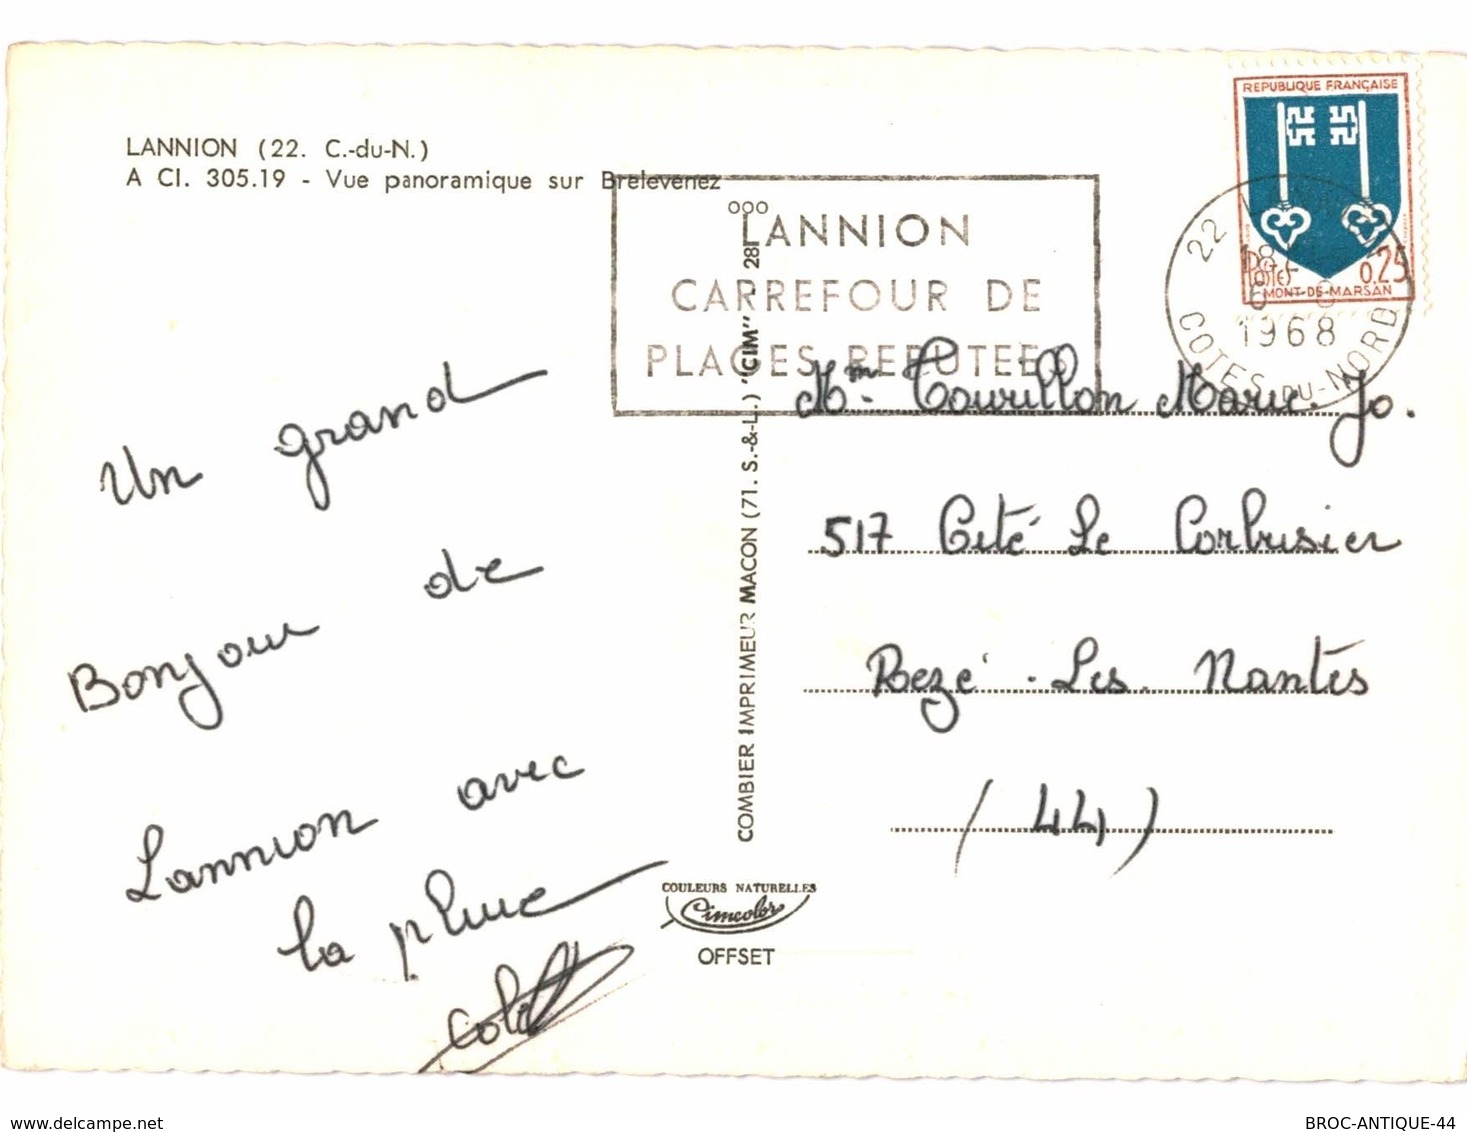 LANNION (22. C.-du-N.)
A CI. 305.19 - Vue panoramique sur Brelevenez
REPUBLIQUE FRANÇAISE
POSTES 0.25
MONT-DE-MARSAN
22
18
1968
COTES-DU-NORD
LANNION
CARREFOUR DE
PLAGES REPUTEES
Un grand
Bonjour de
Lannion avec
la pluie
COMBIER IMPRIMEUR MACON (71. S.-&-L.) "CIM" - 28
Mm. Tourillon Marie. Jo.
517 Cité Le Corbusier
Rezé. Les. Nantes
(44)
COULEURS NATURELLES
Cimcolor
OFFSET
www.delcampe.net
BROC-ANTIQUE-44